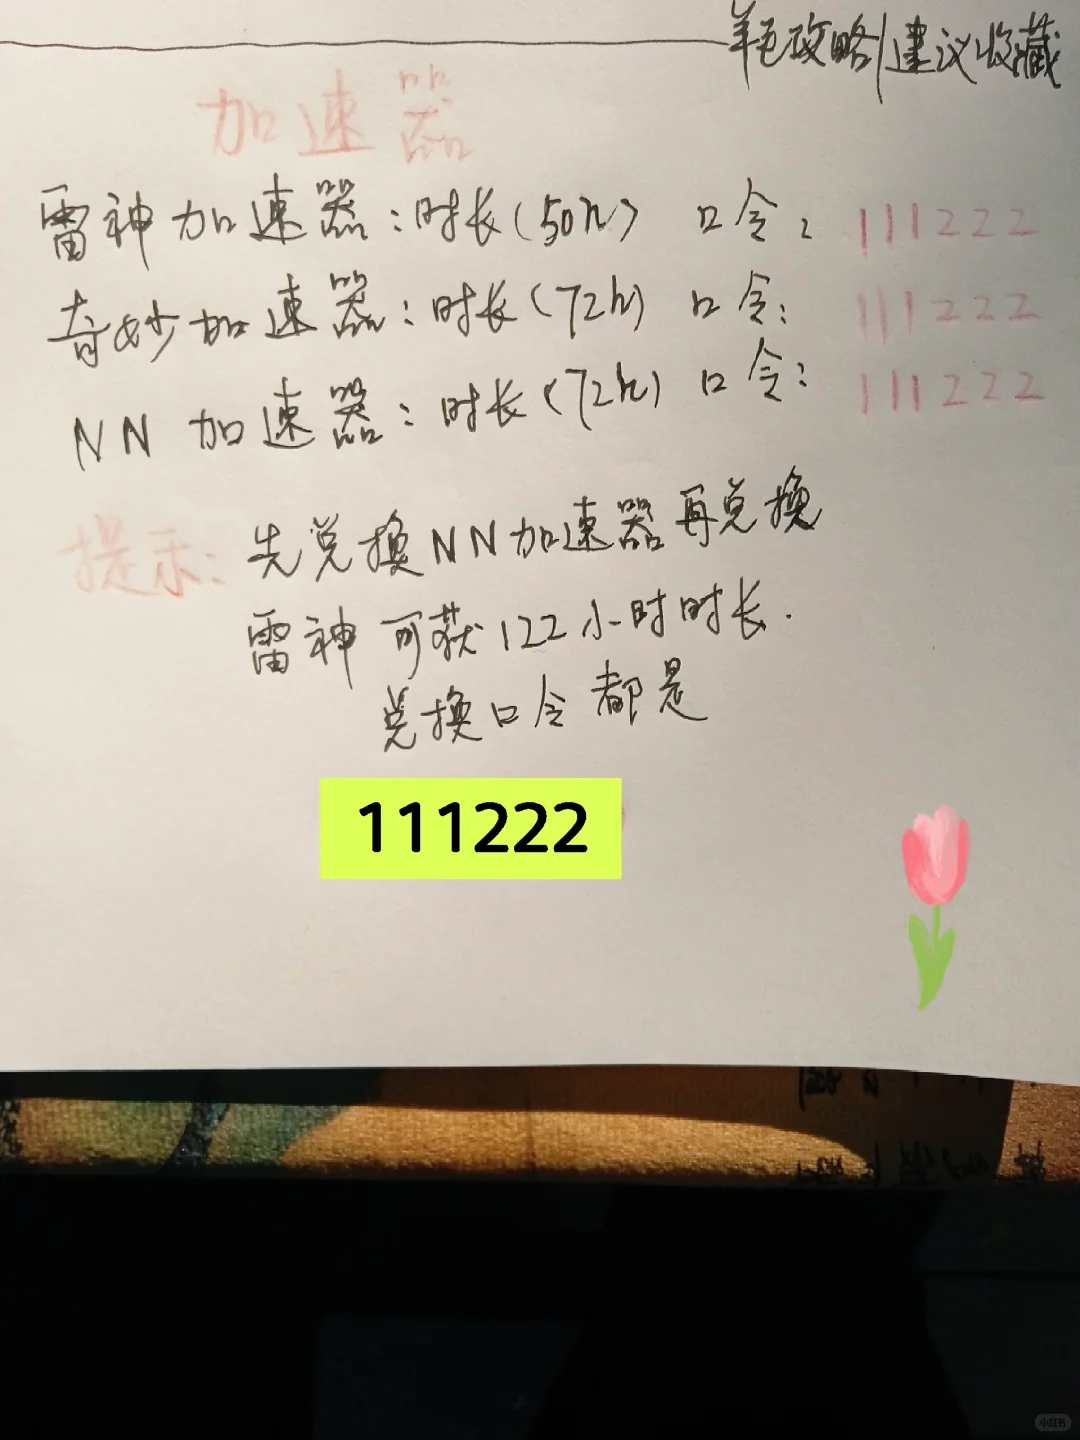 羊毛攻略|建议收藏
加速器
雷神加速器:时长(50h) 口令:111222
奇妙加速器:时长(72h) 口令:111222
NN加速器:时长(72h) 口令:111222
提示:先兑换NN加速器再兑换
雷神可获122小时时长.
兑换口令都是
111222
小红书